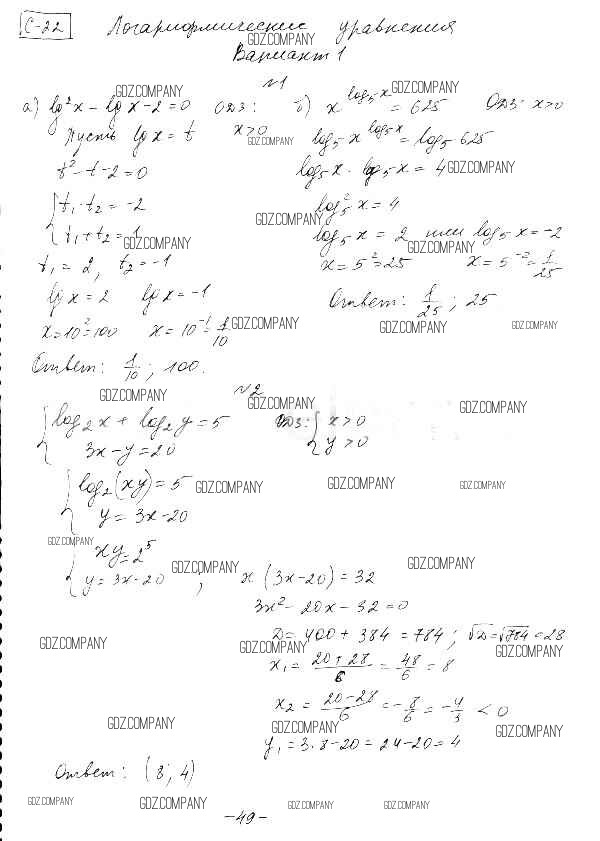 С-22 Логарифмические уравнения
Вариант 1
№1
а) lg²x - lg x - 2 = 0 ОДЗ: x>0
Пусть lg x = t
t² - t - 2 = 0
{ t₁·t₂ = -2
t₁+t₂ = 1
t₁ = 2, t₂ = -1
lg x = 2 lg x = -1
x = 10² = 100 x = 10⁻¹ = 1/10
Ответ: 1/10; 100.
б) x^(log₅x) = 625 ОДЗ: x>0
log₅ x^(log₅x) = log₅ 625
log₅x · log₅x = 4
log₅² x = 4
log₅ x = 2 или log₅ x = -2
x = 5² = 25 x = 5⁻² = 1/25
Ответ: 1/25; 25
№2
{ log₂x + log₂y = 5 ОДЗ: { x>0
3x - y = 20 y>0
{ log₂(xy) = 5
y = 3x - 20
{ xy = 2⁵
y = 3x - 20 ; x(3x-20) = 32
3x² - 20x - 32 = 0
D = 400 + 384 = 784; √D = √784 = 28
x₁ = (20+28)/6 = 48/6 = 8
x₂ = (20-28)/6 = -8/6 = -4/3 < 0
y₁ = 3·8-20 = 24-20 = 4
Ответ: (8; 4)
-49-
GDZ.COMPANY